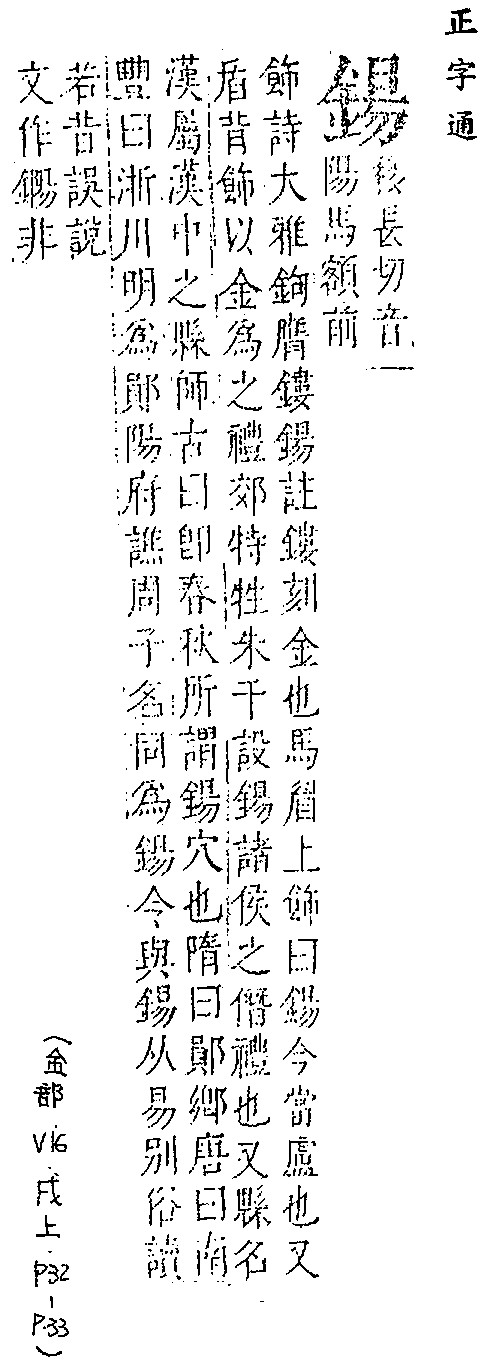 正字通
鍚
移長切音
陽馬額前
飾詩大雅鉤膺鏤鍚註鏤刻金也馬眉上飾曰鍚今當盧也又
盾背飾以金為之禮郊特牲朱干設鍚諸侯之僭禮也又縣名
漢屬漢中之縣師古曰即春秋所謂鍚穴也隋曰鄖鄉唐曰南
豐曰淅川明為鄖陽府譙周子名同為鍚令與錫从易別俗讀
若昔誤說
文作鐊非
(金部 V16.戌上.P32-P.33)